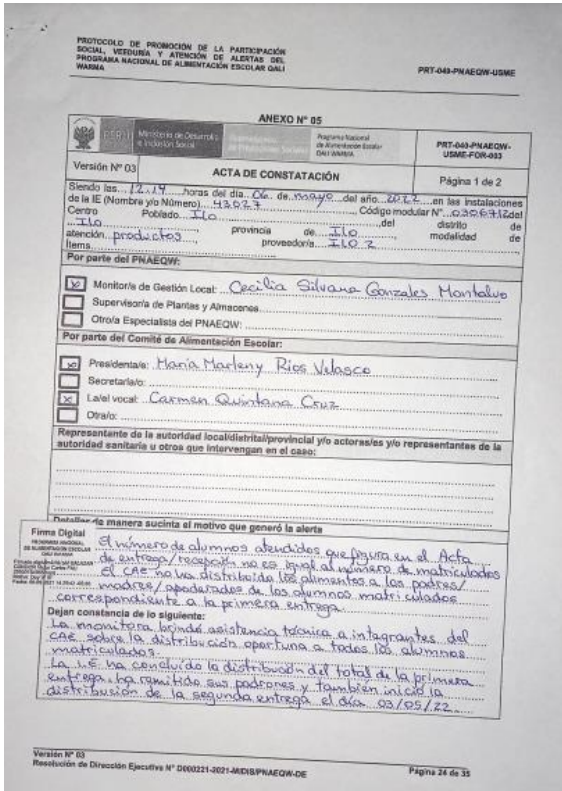 PROTOCOLO DE PROMOCIÓN DE LA PARTICIPACIÓN
SOCIAL, VEEDURÍA Y ATENCIÓN DE ALERTAS DEL
PROGRAMA NACIONAL DE ALIMENTACIÓN ESCOLAR QALI
WARMA
PRT-043-PNAEQW-USME
ANEXO N° 05
PERÚ Ministerio de Desarrollo
e Inclusión Social
Programa Nacional
de Alimentación Escolar
QALI WARMA
PRT-043-PNAEQW-
USME-FOR-003
Versión N° 03
ACTA DE CONSTATACIÓN
Página 1 de 2
Siendo las 12.14 horas del día 06 de mayo del año 2022 en las instalaciones
de la IE (Nombre y/o Número) 43027 Código modular N° 0306712 del
Centro Poblado Ilo, del distrito de
Ilo, provincia de Ilo, modalidad de
atención productos, proveedor/a ILO 2
Ítems
Por parte del PNAEQW:
x Monitor/a de Gestión Local: Cecilia Silvana Gonzales Montalvo
Supervisor/a de Plantas y Almacenes
Otro/a Especialista del PNAEQW:
Por parte del Comité de Alimentación Escolar:
x Presidenta/e: María Marleny Rios Velasco
Secretaria/o:
x La/el vocal: Carmen Quintana Cruz
Otra/o:
Representante de la autoridad local/distrital/provincial y/o actoras/es y/o representantes de la
autoridad sanitaria u otros que intervengan en el caso:
Detallar de manera sucinta el motivo que generó la alerta
Firma Digital
PROGRAMA NACIONAL
DE ALIMENTACIÓN ESCOLAR
QALI WARMA
El número de alumnos atendidos que figura en el Acta
de entrega/recepción no es igual al número de matriculados
El CAE no ha distribuido los alimentos a los padres/
madres/apoderados de los alumnos matriculados
correspondiente a la primera entrega.
Dejan constancia de lo siguiente:
La monitora brindó asistencia técnica a integrantes del
CAE sobre la distribución oportuna a todos los alumnos
matriculados.
La I.E. ha concluido la distribución del total de la primera
entrega, ha remitido sus padrones y también inició la
distribución de la segunda entrega el día 03/05/22.
Versión N° 03
Resolución de Dirección Ejecutiva N° D000221-2021-MIDIS/PNAEQW-DE
Página 24 de 35